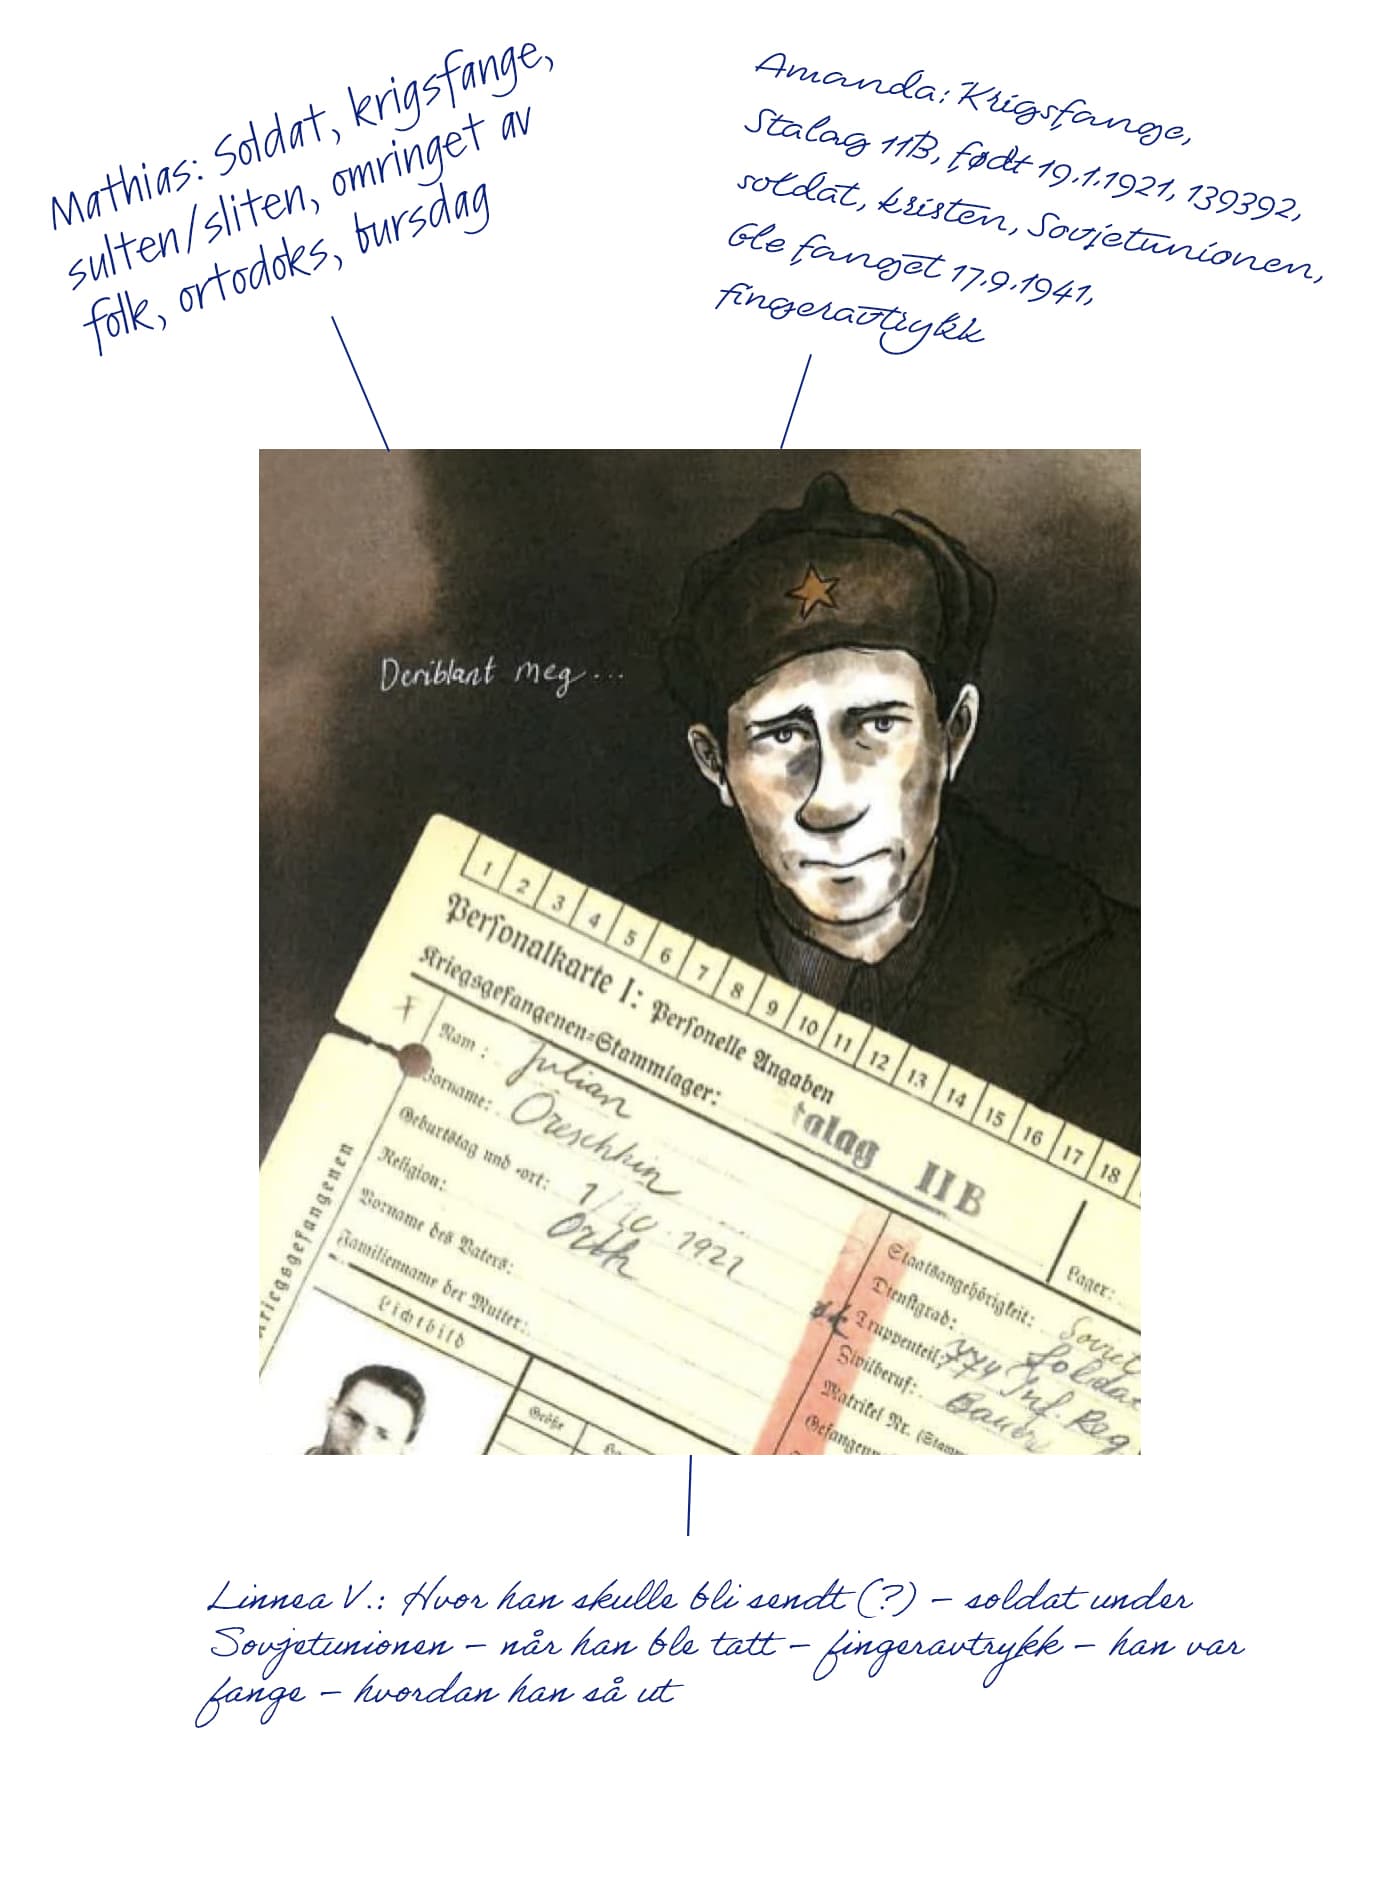 Mathias: Soldat, krigsfange,
sulten/sliten, omringet av
folk, ortodoks, bursdag
Amanda: Krigsfange,
Stalag 11B, født 19.1.1921, 139392,
soldat, kristen, Sovjetunionen,
ble fanget 17.9.1941,
fingeravtrykk
Deriblant meg...
1 2 3 4 5 6 7 8 9 10 11 12 13 14 15 16 17 18
Personalkarte I: Personelle Angaben
Kriegsgefangenen=Stammlager:
talag IIB
Lager:
Nam: Julian
Vorname: Oreschkin
Geburtstag und -ort: 1921
Religion: Orth
Vorname des Vaters:
Familienname der Mutter:
Staatsangehörigkeit: Soviet
Dienstgrad: Soldat
Truppenteil: 774 Inf. Reg
Zivilberuf: Bauer
Matrikel Nr. (Stamm
Gefangenn
kriegsgefangenen
Lichtbild
Größe
Linnea V.: Hvor han skulle bli sendt (?) – soldat under
Sovjetunionen – når han ble tatt – fingeravtrykk – han var
fange – hvordan han så ut